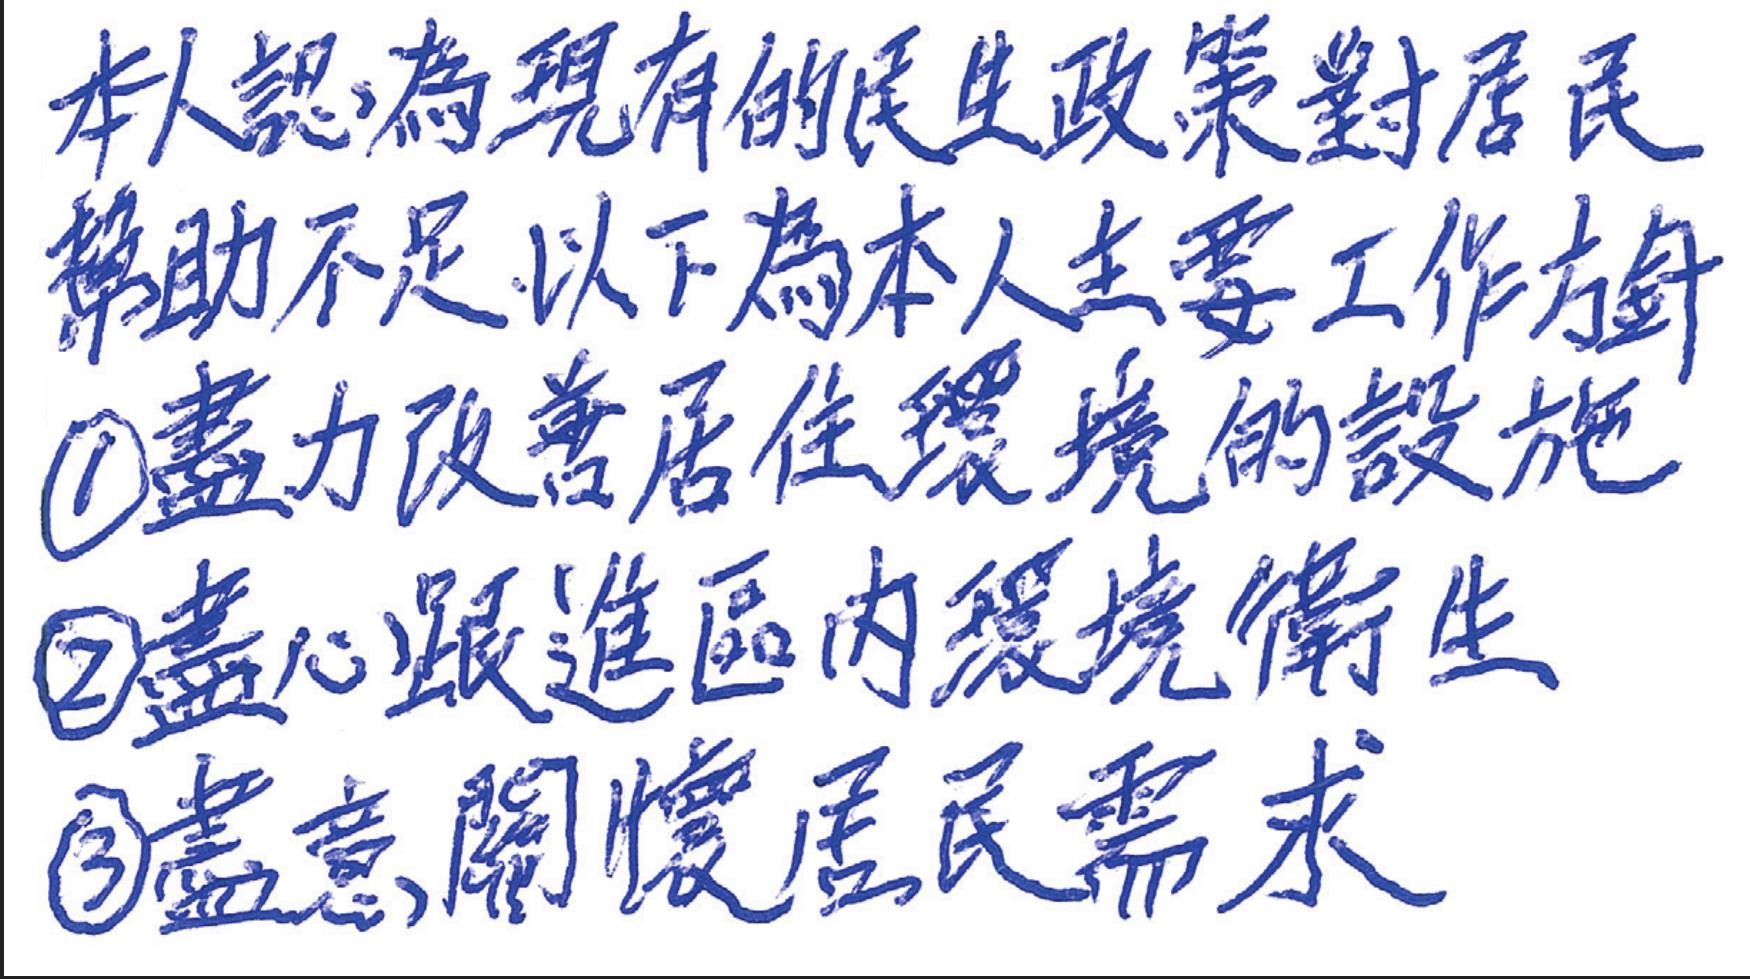 本人認為現有的民生政策對居民
幫助不足 以下為本人主要工作方針
①盡力改善居住環境的設施
②盡心跟進區內環境衛生
③盡意關懷居民需求